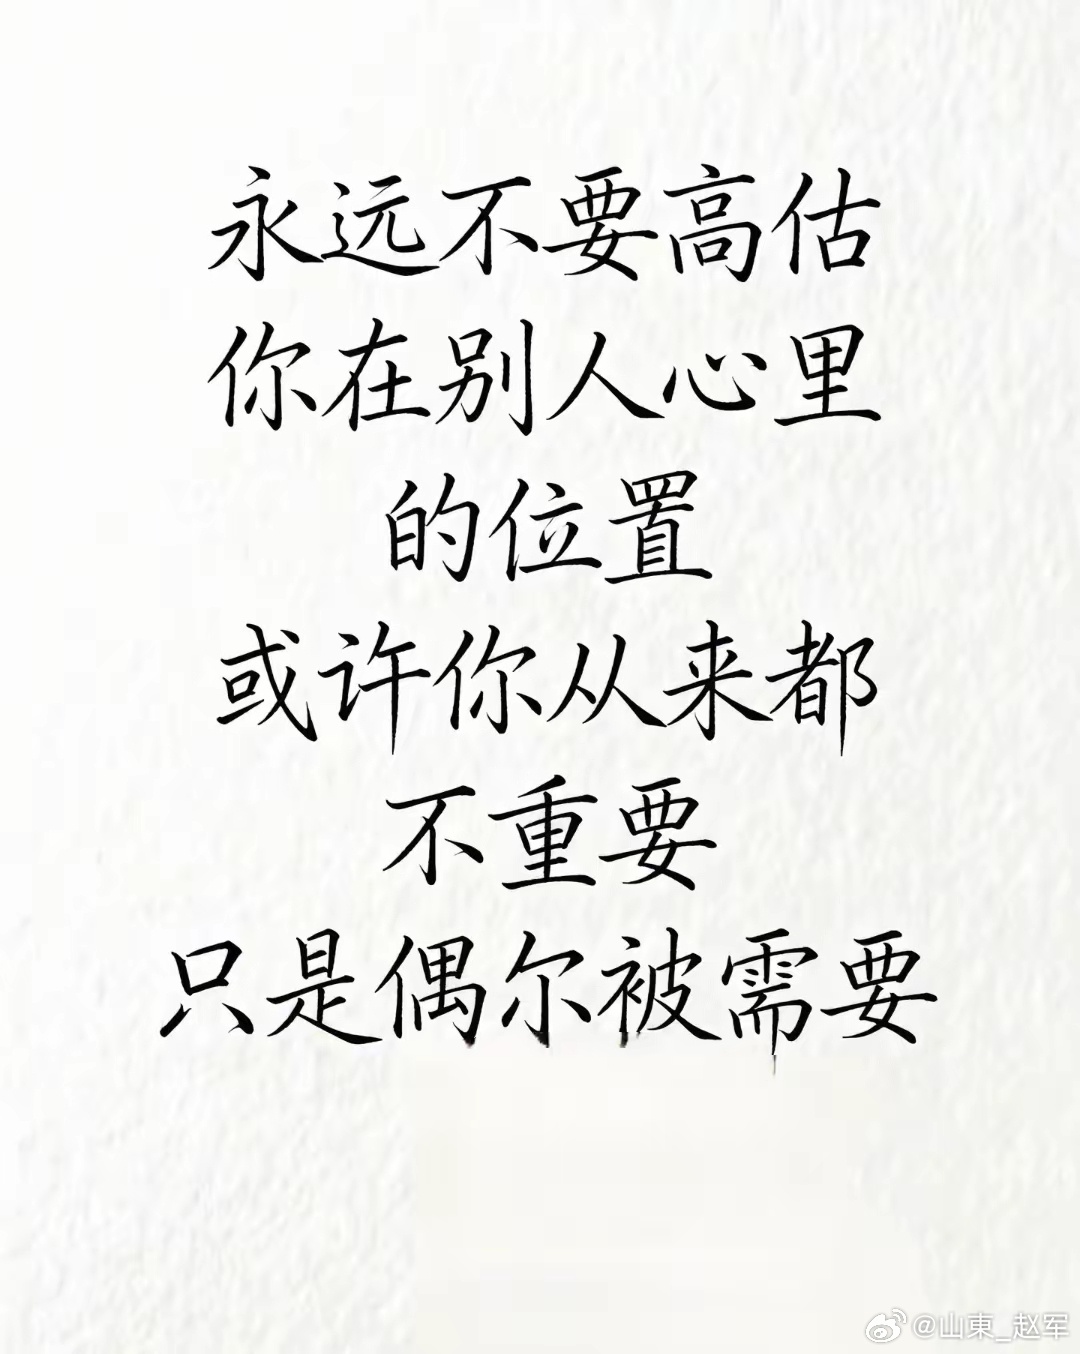 永远不要高估
你在别人心里
的位置
或许你从来都
不重要
只是偶尔被需要
@山東_赵军